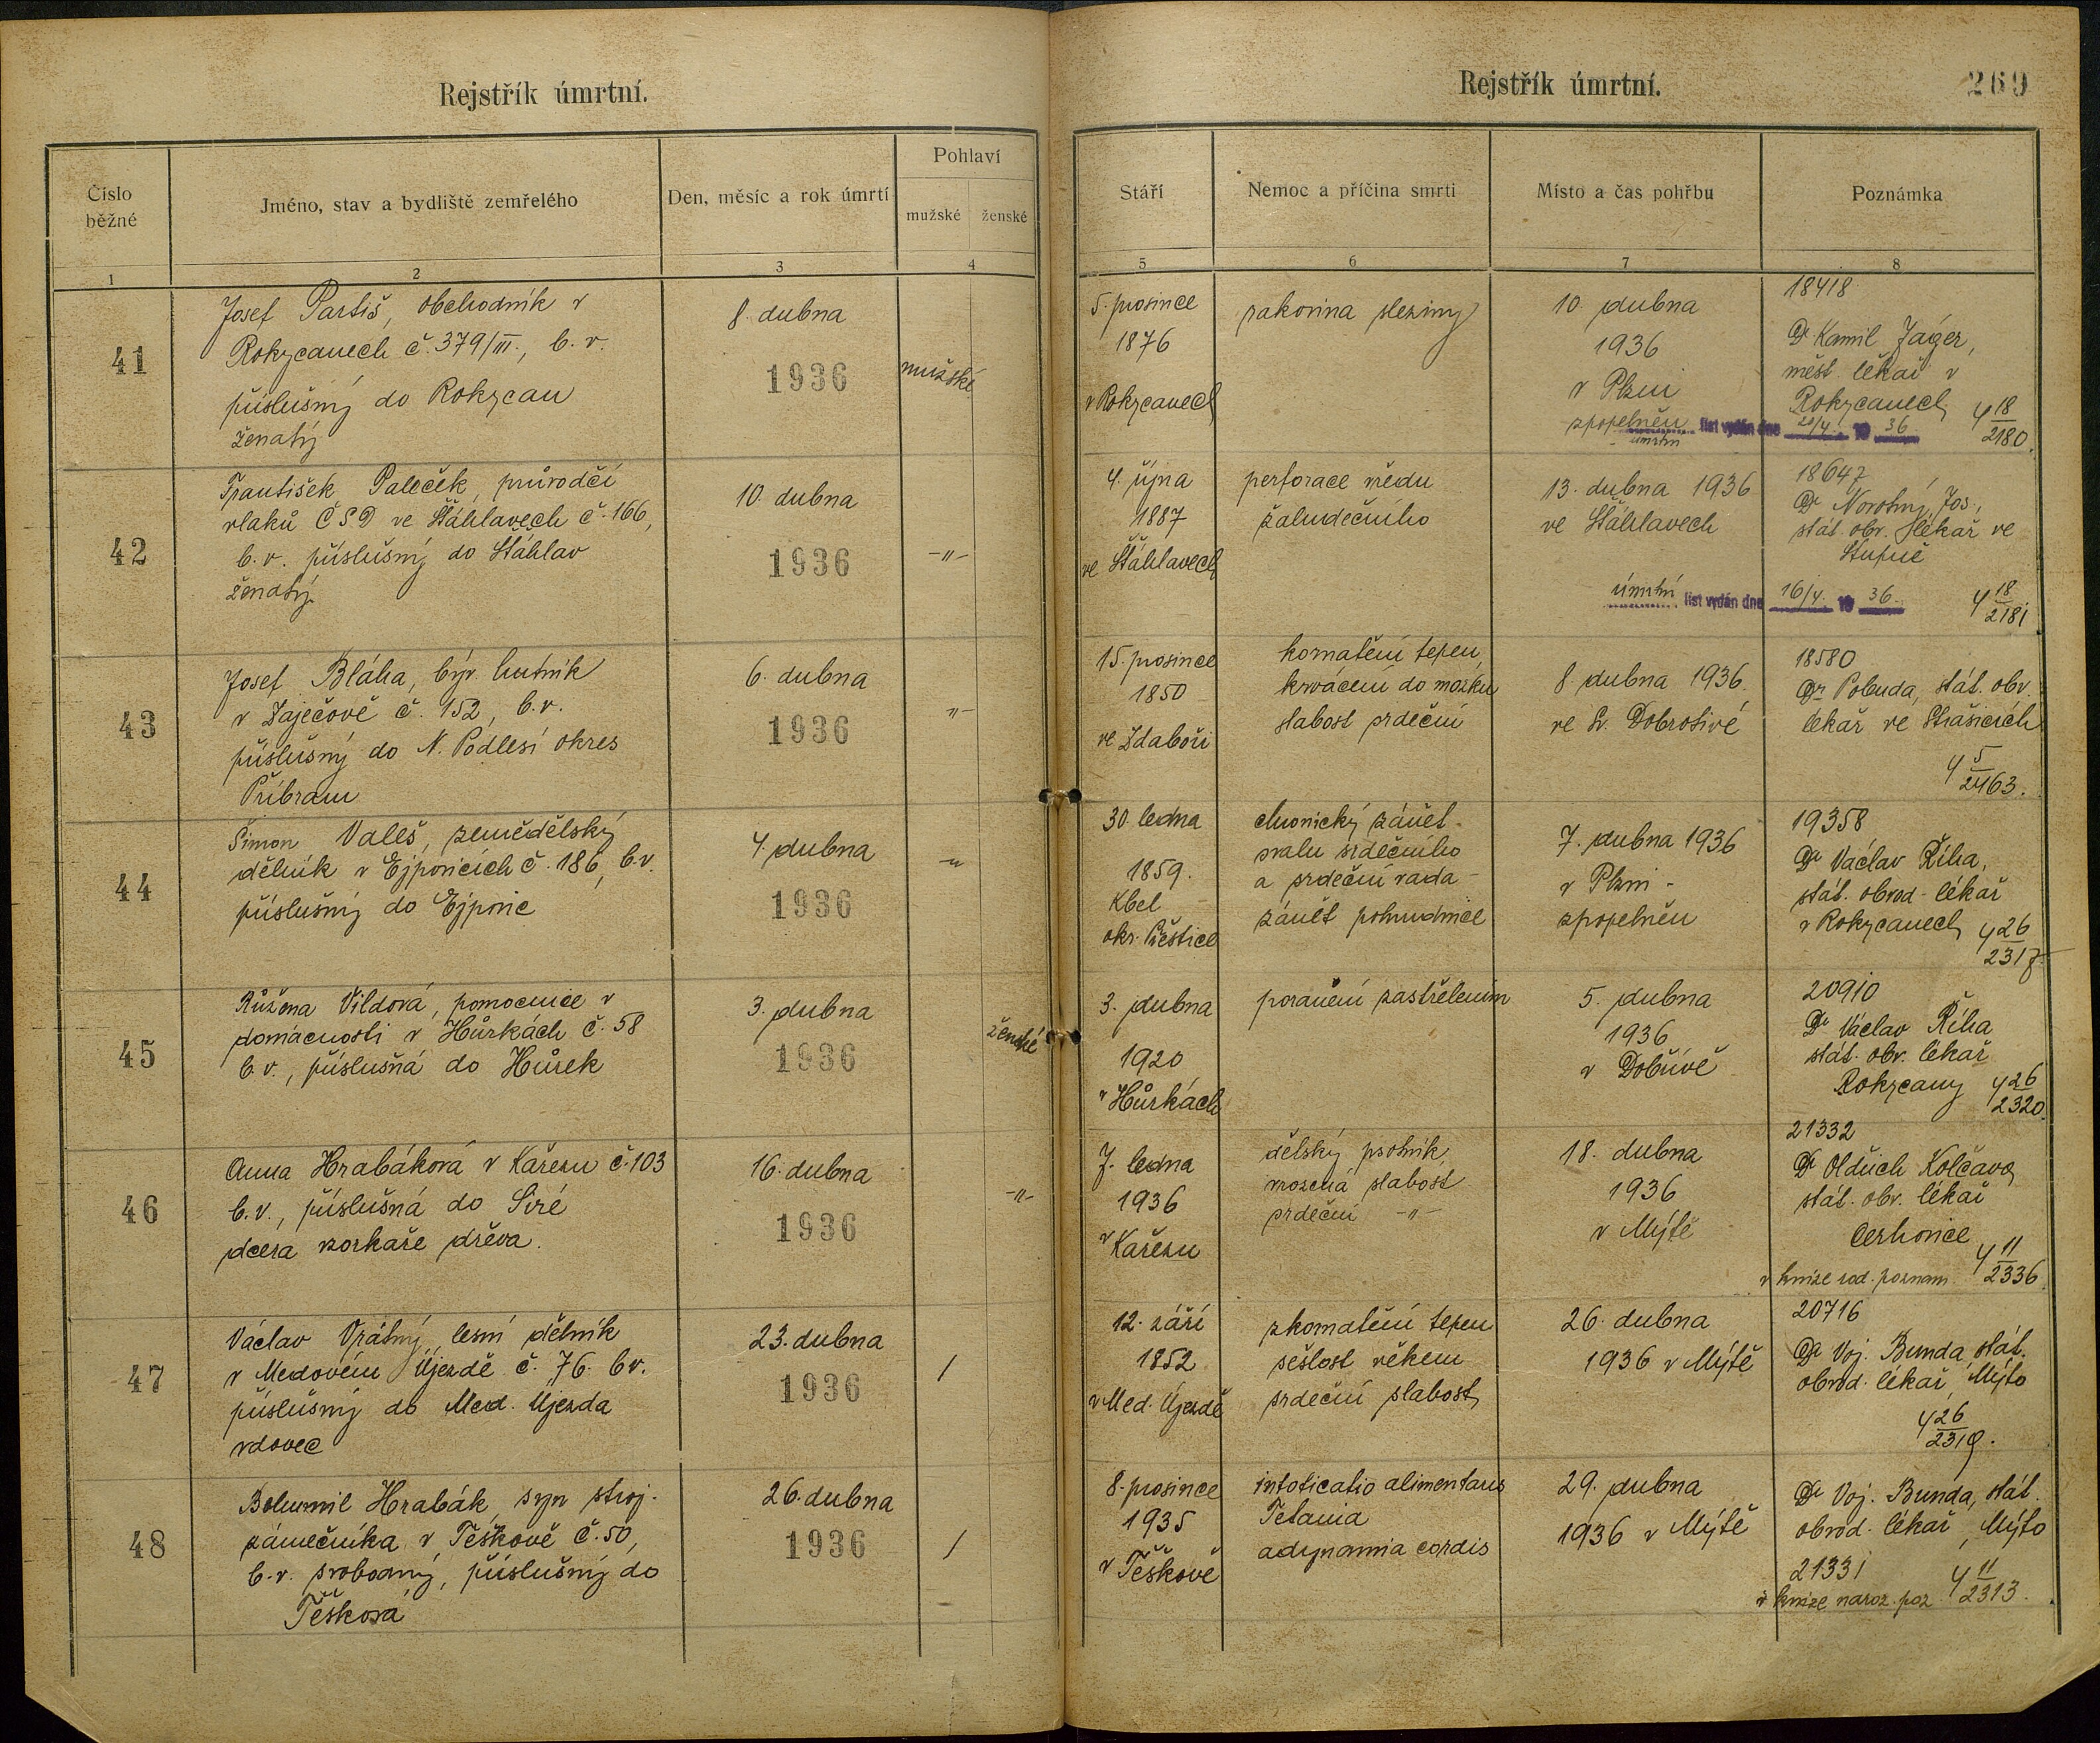 Rejstřík úmrtní.
Číslo běžné
Jméno, stav a bydliště zemřelého
Den, měsíc a rok úmrtí
Pohlaví
mužské
ženské
1
2
3
4
Rejstřík úmrtní.
269
Stáří
Nemoc a příčina smrti
Místo a čas pohřbu
Poznámka
5
6
7
8
41
Josef Partiš, obchodník v
Rokycanech č. 379/III., b. v.
příslušný do Rokycan
ženatý
8. dubna
1936
mužské
5. prosince
1876
v Rokycanech
rakovina sleziny
10. dubna
1936
v Plzni
zpopelněn
18418
Dr Kamil Jáger,
měst. lékař v
Rokycanech
úmrtní list vydán dne 20/4. 19 36
4 18/2180.
42
František Paleček, průvodčí
vlaků ČSD ve Šťáhlavech č. 166,
b. v. příslušný do Šťáhlav
ženatý
10. dubna
1936
-"-
4. října
1887
ve Šťáhlavech
perforace vředu
žaludečního
13. dubna 1936
ve Šťáhlavech
18647
Dr Novotný, Jos.,
stát. obv. lékař ve
Stupně
úmrtní list vydán dne 16/4. 19 36.
4 18/2181
43
Josef Bláha, býv. hutník
v Zaječově č. 152, b. v.
příslušný do N. Podlesí okres
Příbram
6. dubna
1936
-"-
15. prosince
1850
ve Zdaboři
kornatění tepen,
krvácení do mozku
slabost srdeční
8. dubna 1936.
ve Sv. Dobrotivé
18580
Dr Pobuda, stát. obv.
lékař ve Strašicích
4 5/2463.
44
Šimon Valeš, zemědělský
dělník v Ejpovicích č. 186, b. v.
příslušný do Ejpovic
4. dubna
1936
-"-
30. ledna
1859.
Kbel
okr. Přeštice
chronický zánět
svalu srdečního
a srdeční vada -
zánět pohrudnice
7. dubna 1936
v Plzni -
zpopelněn
19358
Dr Václav Říha,
stát. obvod. lékař
v Rokycanech
4 26/2318
45
Růžena Vildová, pomocnice v
domácnosti v Hůrkách č. 58
b. v., příslušná do Hůrek
3. dubna
1936
ženské
3. dubna
1920
v Hůrkách
poranění zastřelením
5. dubna
1936
v Dobřívě
20910
Dr Václav Říha
stát. obv. lékař
Rokycany
4 26/2320.
46
Anna Hrabáková v Kařezu č. 103
b. v., příslušná do Siré
dcera vorkaře dřeva.
16. dubna
1936
-"-
7. ledna
1936
v Kařezu
dětský psotník,
vrozená slabost
srdeční -"-
18. dubna
1936
v Mýtě
21332
Dr Oldřich Kolčava
stát. obv. lékař
Cerhovice
v knize rod. poznam.
4 11/2336
47
Václav Vrátný, lesní dělník
v Medovém Újezdě č. 76. b v.
příslušný do Med. Újezda
vdovec
23. dubna
1936
/
12. září
1852
v Med. Újezdě
zkornatění tepen
sešlost věkem
srdeční slabost
26. dubna
1936 v Mýtě
20716
Dr Voj. Bunda, stát.
obvod. lékař, Mýto
4 26/2319.
48
Bohumil Hrabák, syn stroj.
zámečníka v Těškově č. 50,
b. v. svobodný, příslušný do
Těškova
26. dubna
1936
/
8. prosince
1935
v Těškově
intoticatio alimentaris
Tetania
adynamia cordis
29. dubna
1936 v Mýtě
Dr Voj. Bunda, stát.
obvod. lékař, Mýto
21331
v knize naroz. poz.
4 11/2313.